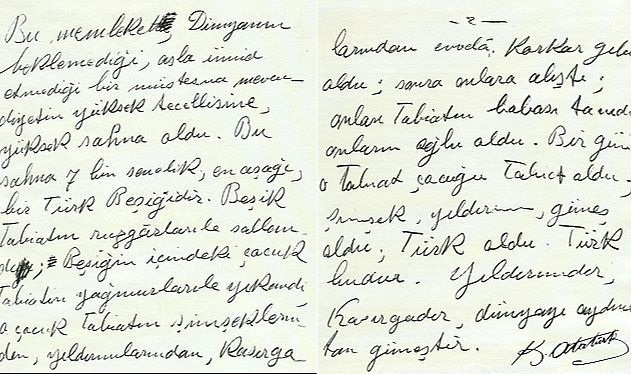 Bu memleket, Dünyanın
beklemediği, asla ümid
etmediği bir müstesna mevcu-
diyetin yüksek tecellisine,
yüksek sahna oldu. Bu
sahna 7 bin senelik, en aşağı,
bir Türk Beşiğidir. Beşik
Tabiatın rüzgârlarile sallan-
dı; Beşiğin içindeki çocuk
Tabiatın yağmurlarile yıkandı
o çocuk Tabiatın şimşeklerin-
den, yıldırımlarından, Kasırga
- 2 -
larından evvelâ Korkar gibi
oldu; sonra onlara alıştı;
onları Tabiatın babası tanıdı
onların oğlu oldu. Bir gün
o Tabiat çocuğu Tabiat oldu.
şimşek, yıldırım, güneş
oldu; Türk oldu. Türk
budur. Yıldırımdır,
Kasırgadır, dünyayı aydın-
tan güneştir.
K. Atatürk